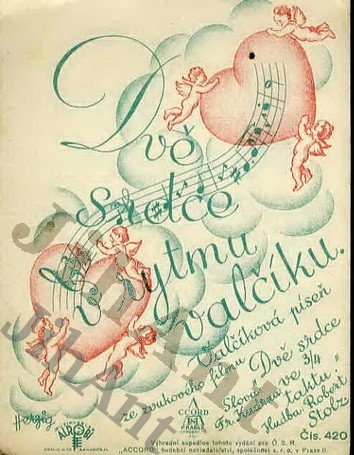 Dvě
srdce
v rytmu
valčíku.
Valčíková píseň
ze zvukového filmu
„Dvě srdce
ve 3/4
taktu."
Slova:
Hudba: Robert
Stolz
Herzig
ACCORD
Výhradní expedice tohoto vydání pro Č. S. R.
„ACCORD" hudební nakladatelství, společnost s. r. o. v Praze II.
Čís. 420
JihAnt
JihAnt